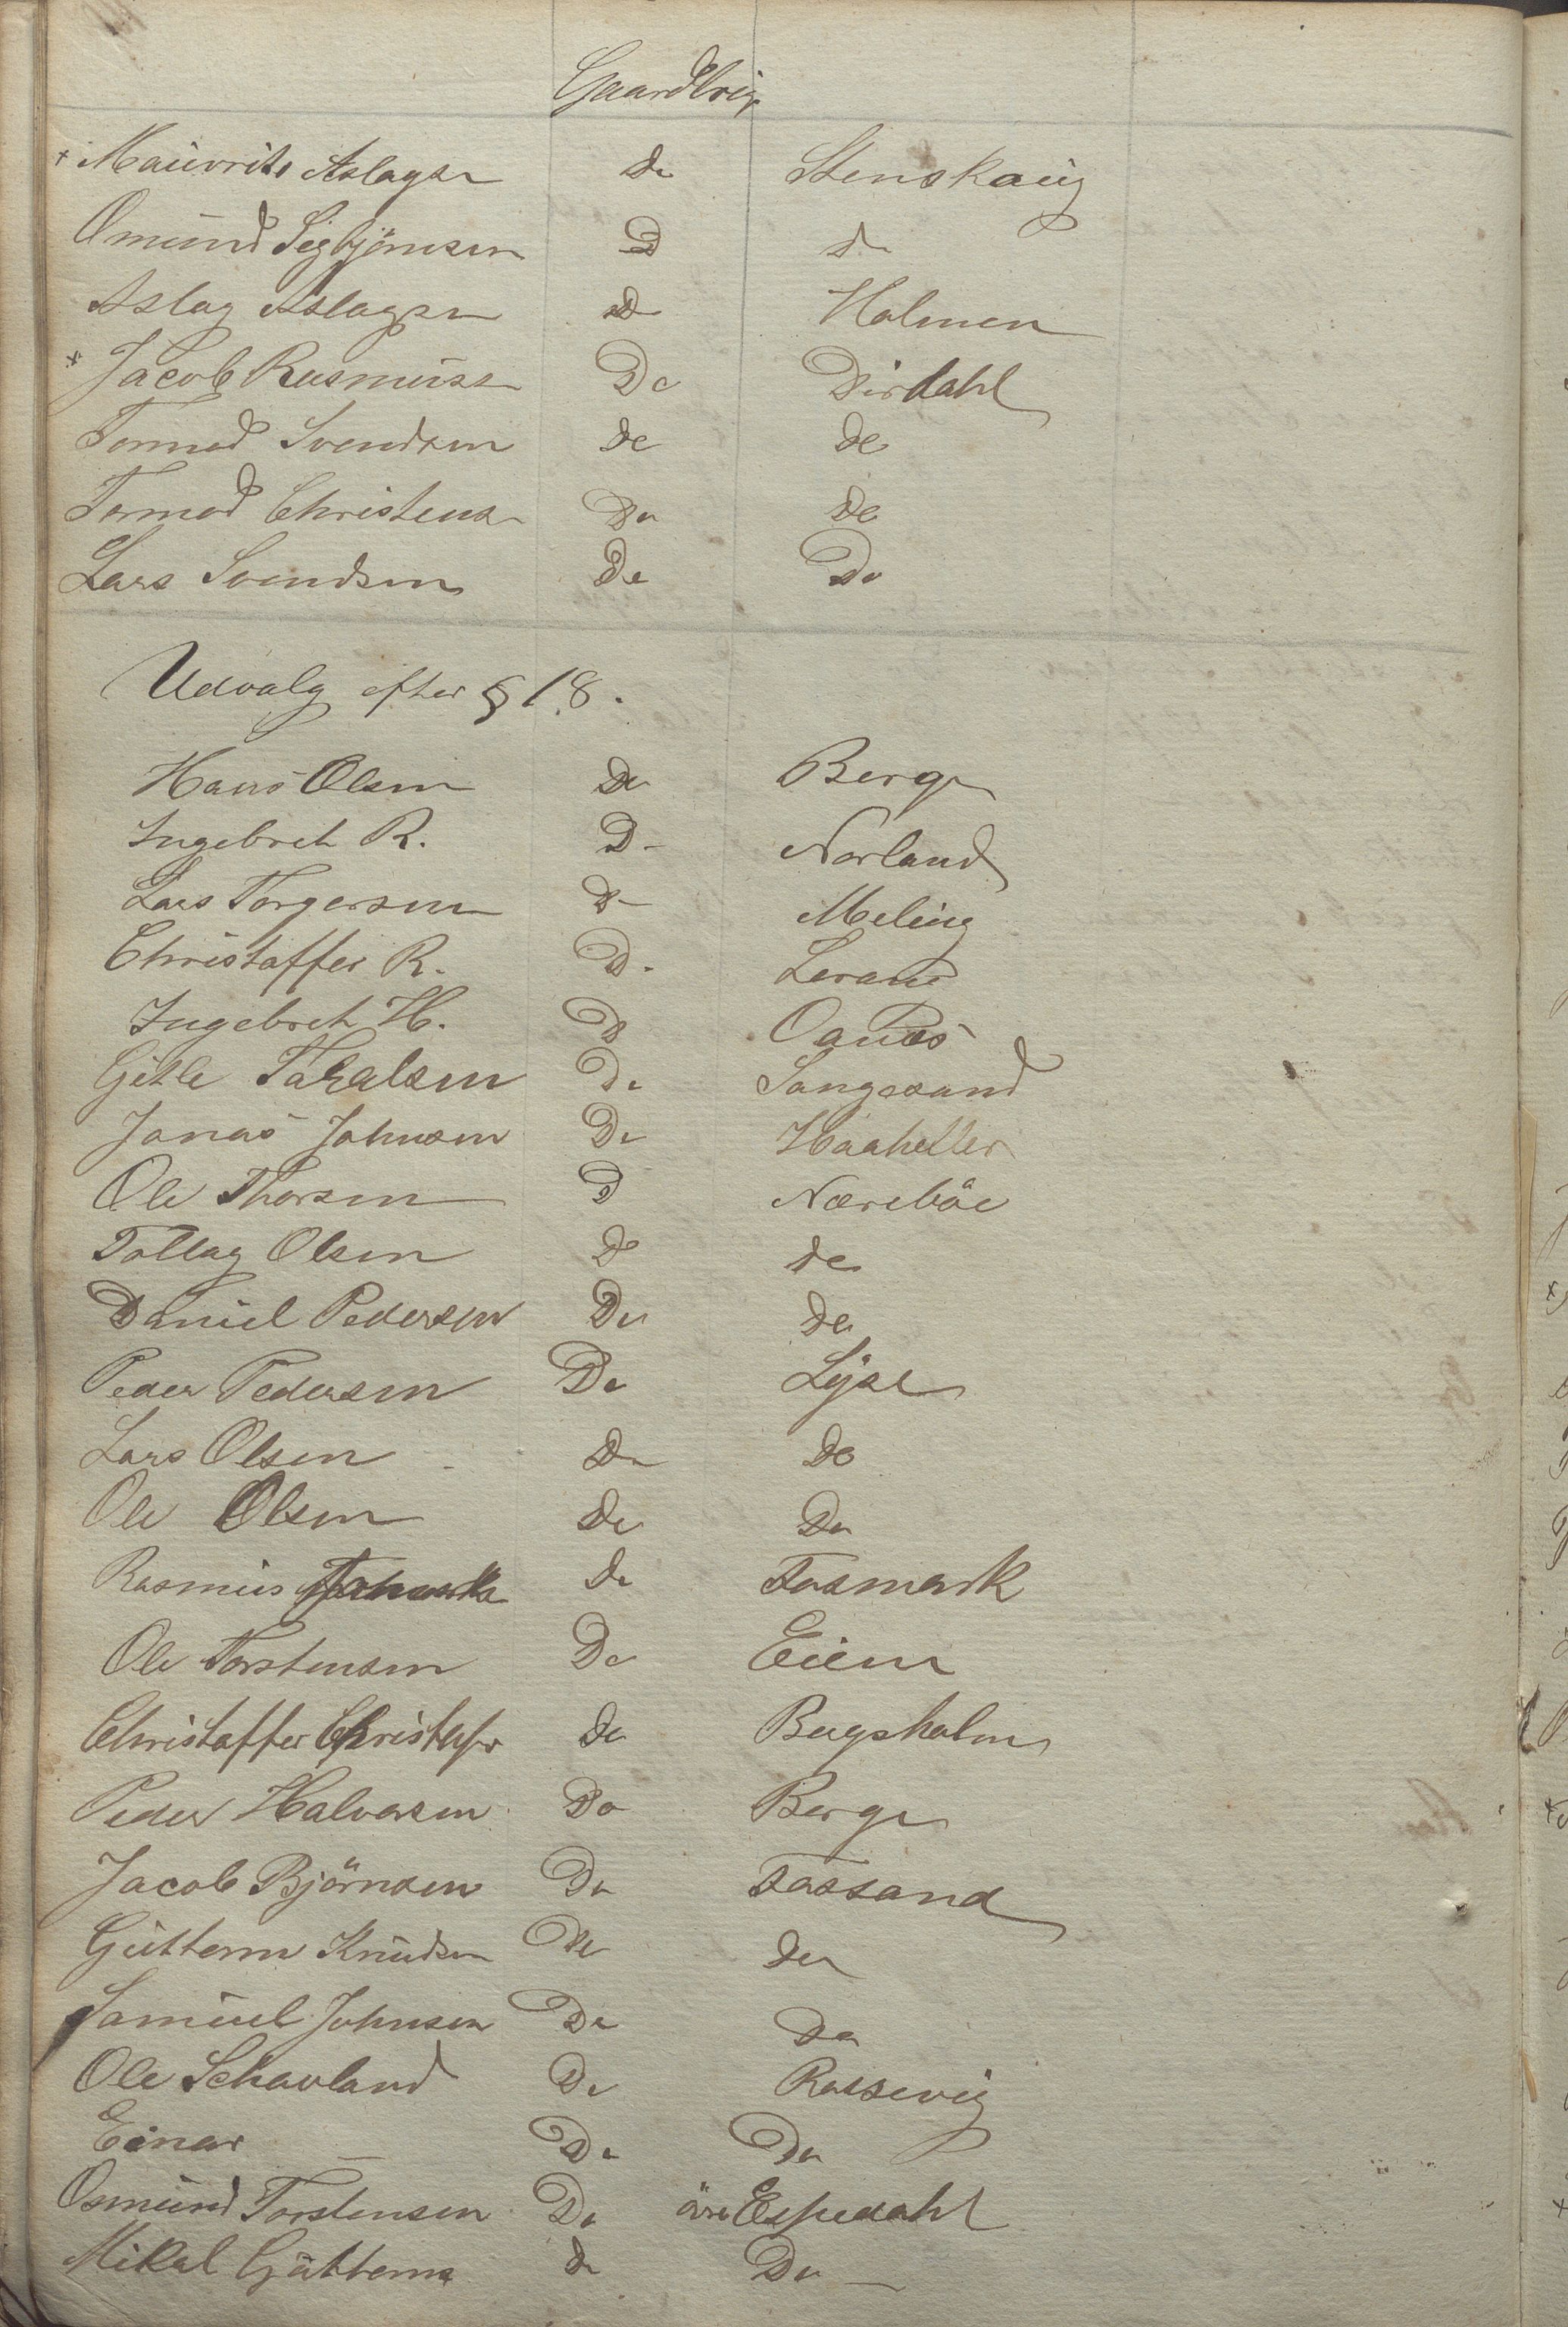 Gaardbrig.
+ Mauvrits Aslagsen Do Stenskaug
Omund Sigbjörnsen D do
Aslag Aslagsen D Holmen
+ Jacob Rasmussen Do Dirdahl
Tormod Svendsen do do
Tormod Christens. Do do
Lars Svendsen Do Do
Udvalg efter § 18.
Hans Olsen Do Berge
Ingebret R. D- Norland
Lars Torgersen D- Meling
Christaffer R. D- Lerand
Ingebret H. D Oanæs
Gitle Taralsen Do Sangesand
Jonas Johnsen Do Haaheller
Ole Thorsen D Næreböe
Tollag Olsen Do do
Daniel Pedersen Do do
Peder Pedersen Do Lyse
Lars Olsen Do do
Ole Olsen do Do
Rasmus do Fosmark
Ole Torstensen Do Eiem
Christaffer Christofs do Bergsholm
Peder Halvorsen Do Berge
Jacob Björnsen Do Fossand
Guttorm Knudsen do do
Samuel Johnsen Do Do
Ole Schavland Do Rossevig
Einar Do Do
Osmund Torstensen Do övre Espedahl
Mikal Guttorms do Do